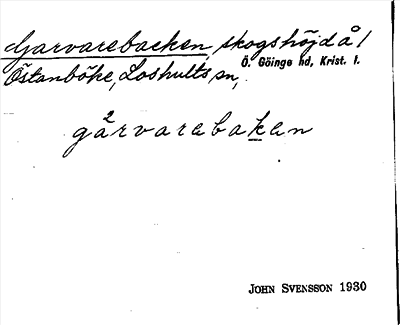 Garvarebacken, skogshöjd å /
Östanböke, Loshults sn, Ö. Göinge hd, Krist. l.
gårvarebaken
2
JOHN SVENSSON 1930